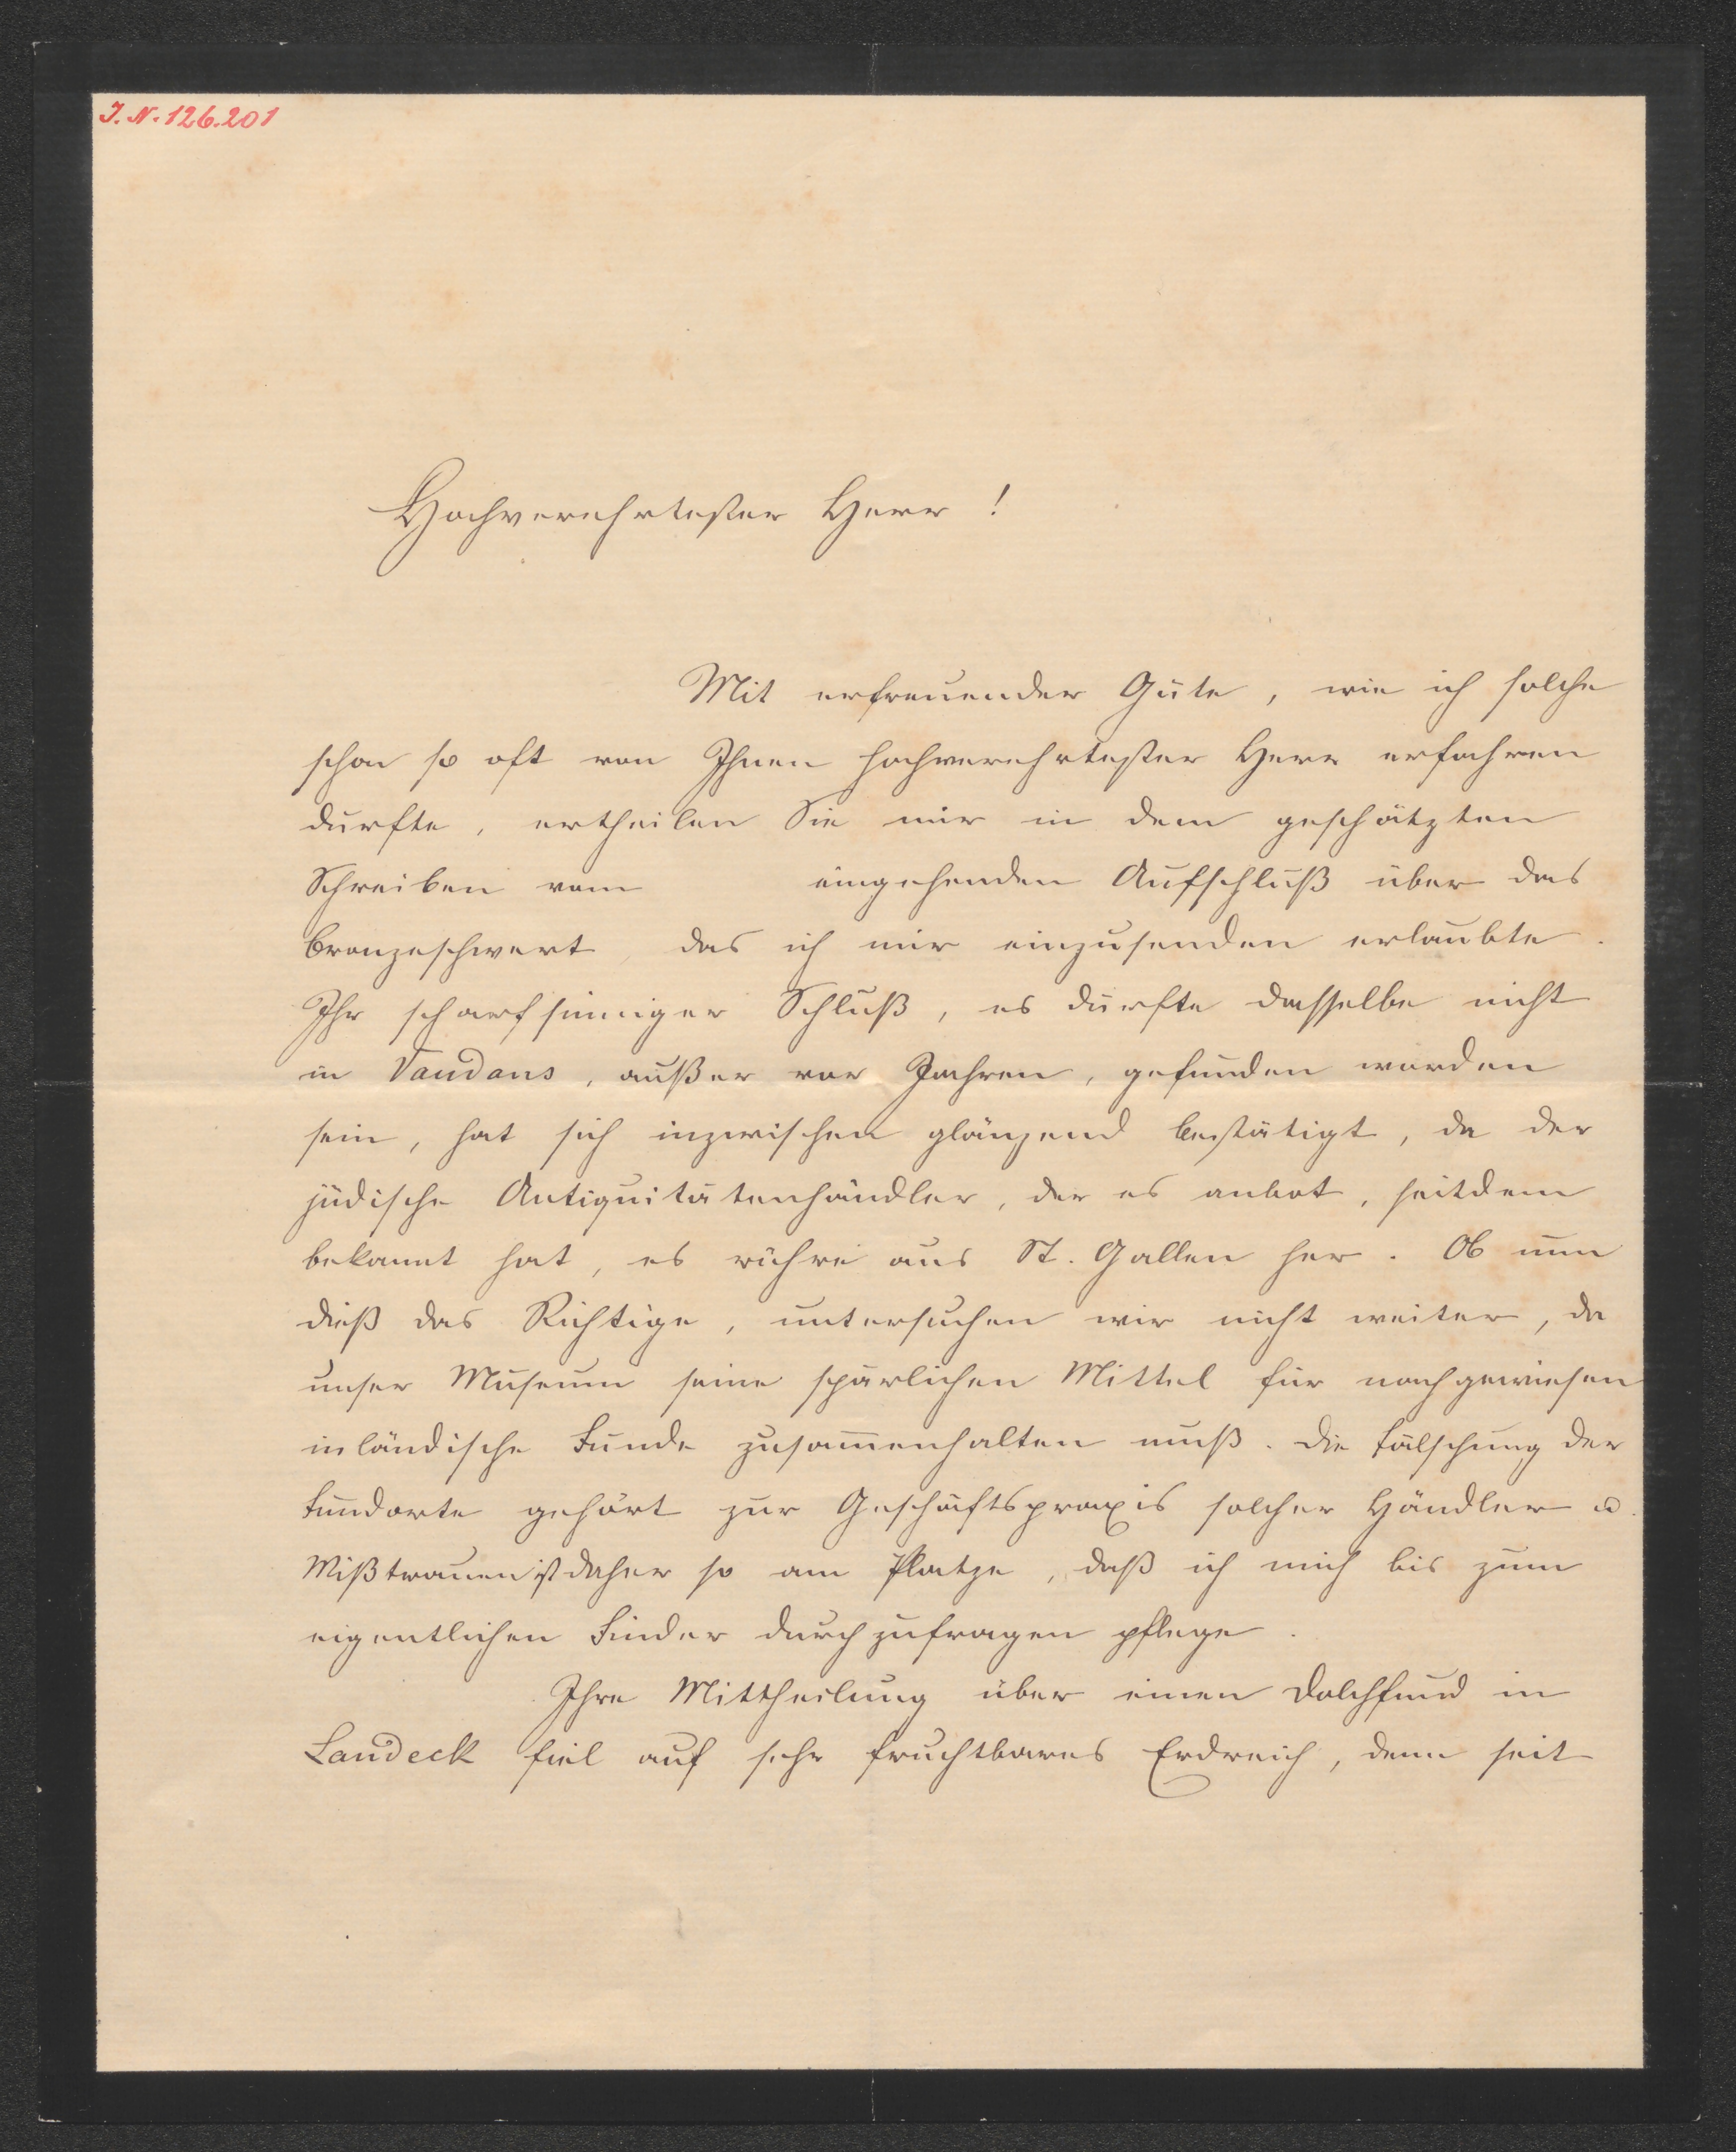 J. N. 126.201
Hochverehrtester Herr !
Mit erfreuender Güte, wie ich solche
schon so oft von Ihnen hochverehrtester Herr erfahren
durfte, ertheilen Sie mir in dem geschätzten
Schreiben vom eingehenden Aufschluß über das
Bronzeschwert, das ich mir einzusenden erlaubte.
Ihr scharfsinniger Schluß, es dürfte dasselbe nicht
in Vandans, außer vor Jahren, gefunden worden
sein, hat sich inzwischen glänzend bestätigt, da der
jüdische Antiquitätenhändler, der es anbot, seitdem
bekannt hat, es rühre aus St. Gallen her. Ob nun
dieß das Richtige, untersuchen wir nicht weiter, da
unser Museum seine spärlichen Mittel für nachgewiesen
inländische Funde zusam̅enhalten muß. Die Fälschung der
Fundorte gehört zur Geschäftspraxis solcher Händler u.
Mißtrauen ist daher so am Platze, daß ich mich bis zum
eigentlichen Finder durchzufragen pflege.
Ihre Mittheilung über einen Dolchfund in
Landeck fiel auf sehr fruchtbares Erdreich, denn seit